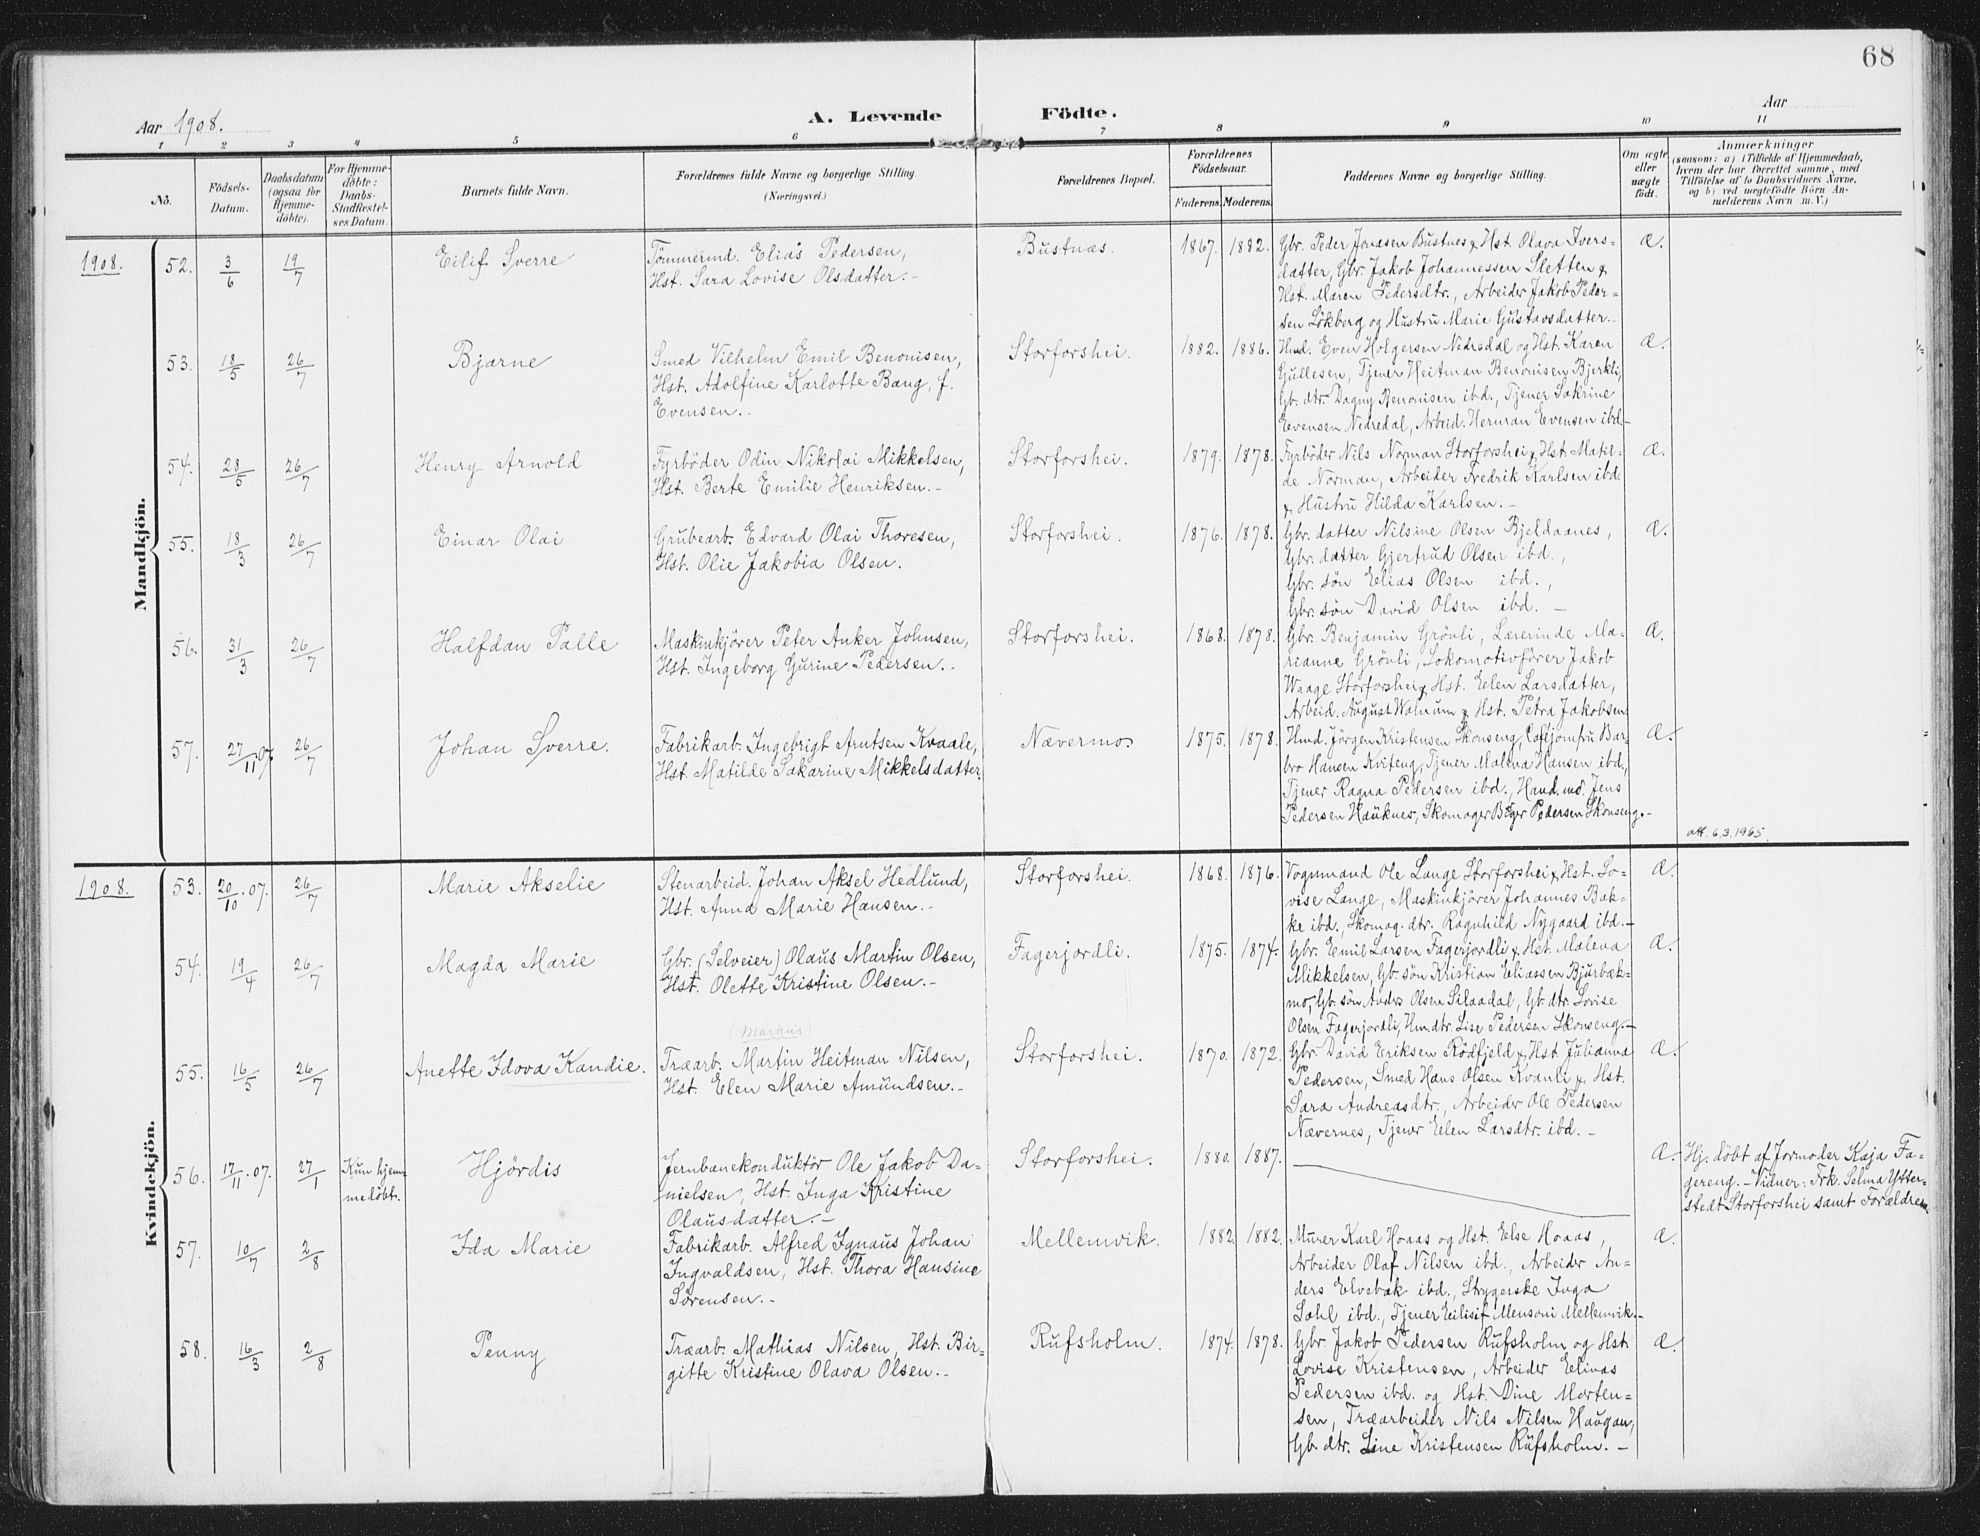 68
Aar 1908.
A. Levende Födte.
Aar
1 2 3 4 5 6 7 8 9 10 11
No.
Födsels-
Datum.
Daabsdatum
(ogsaa for
Hjemme-
döbte).
For Hjemme-
döbte:
Daabs-
Stadfæstel-
ses Datum.
Barnets fulde Navn.
Forældrenes fulde Navne og borgerlige Stilling
(Næringsvei.)
Forældrenes Bopæl.
Forældrenes
Födselsaar.
Faderens. Moderens.
Faddernes Navne og borgerlige Stilling.
Om ægte
eller
uægte
födt.
Anmærkninger
(saasom: a) i Tilfælde af Hjemmedaab,
hvem der har forrettet samme, med
Tilföielse af to Daabsvidners Navne,
og b) ved uægtefödte Börn An-
melderens Navn m.V.)
Mandkjön.
1908. 52. 3/6 19/7 Eilif Sverre
Tömmermd. Elias Pedersen,
Hst. Sara Lovise Olsdatter.-
Bustnæs. 1867. 1882.
Gbr. Peder Jonasen Bustnes & Hst. Olava Ivers=
datter, Gbr. Jakob Johannessen Sletten &
Hst. Maren Pedersdtr., Arbeider Jakob Peder=
sen Lökberg og Hustru Marie Gustavsdatter.-
Æ.
53. 18/5 26/7 Bjarne
Smed Vilhelm Emil Benonisen,
Hst. Adolfine Karlotte Bang, f.
Evensen.-
Storforshei. 1882. 1886.
Hmd. Even Holgersen Nedredal og Hst. Karen
Gullesen, Tjener Heitman Benonisen Bjerkli,
Gb. dtr. Dagny Benonisen ibd., Tjener Sakrine
Evensen Nedredal, Arbeid. Herman Evensen ibd-
Æ.
54. 28/5 26/7 Henry Arnold
Fyrböder Odin Nikolai Mikkelsen,
Hst. Berte Emilie Henriksen.-
Storforshei. 1879. 1878.
Fyrböder Nils Norman Storforshei & Hst. Matil-
de Norman, Arbeider Fredrik Karlsen ibd.
& Hustru Hilda Karlsen.-
Æ.
55. 18/3 26/7 Einar Olai
Grubearb. Edvard Olai Thoresen,
Hst. Olie Jakobia Olsen.
Storforshei. 1876. 1878.
Gbr. datter Nilsine Olsen Bjeldaanes,
Gbr. datter Gjertrud Olsen ibd.,
Gbr. sön Elias Olsen ibd.,
Gbr. sön David Olsen ibd. -
Æ.
56. 31/3 26/7 Halfdan Palle
Maskinkjörer Peter Anker Johnsen,
Hst. Ingeborg Gurine Pedersen.-
Storforshei. 1868. 1878.
Gbr. Benjamin Grövli, Lærerinde Ma-
rianne Grövli, Lokomotivförer Jakob
Waage Storforshei & Hst. Elen Larsdatter,
Arbeid. August Walnum & Hst. Petra Jakobsen
Æ.
57. 27/11 07. 26/7 Johan Sverre.
Fabrikarb. Ingebrigt Arntsen Kvaale,
Hst. Matilde Sakarine Mikkelsdatter.
Nævermo. 1875. 1878.
Hmd. Jörgen Kristensen Skonseng, Cafejomfru Bar-
bro Hansen Kviteng, Tjener Malena Hansen ibd.,
Tjener Ragna Pedersen ibd., Hand. md. Jens
Pedersen Hauknes, Skomager Pedersen Skonseng.-
Æ.
att. 6.3.1965.
Kvindekjön.
1908. 53. 20/10 .07. 26/7 Marie Akselie
Stenarbeid. Johan Aksel Hedlund,
Hst. Anna Marie Hansen.-
Storforshei. 1868. 1876.
Vognmand Ole Lange Storforshei & Hst. Lo-
vise Lange, Maskinkjörer Johannes Bak-
ke ibd., Skomag. dtr. Ragnhild Nygaard ibd.-
Æ.
54. 19/4 26/7 Magda Marie
Gbr. (Selveier) Olaus Martin Olsen,
Hst. Olette Kristine Olsen.-
Fagerjordli. 1875. 1874.
Gbr. Emil Larsen Fagerjordli & Hst. Malena
Mikkelsen, Gb. sön Kristian Eliassen Bjurbæk-
mo, Gb. sön Anders Olsen Silaadal, Gb. dtr. Lovise
Olsen Fagerjordli, Hm. dtr. Lise Pedersen Skonseng.-
Æ.
(Markus)
55. 16/5 26/7 Anette Idova Kandie.
Træarb. Martin Heitman Nilsen,
Hst. Elen Marie Amundsen.-
Storforshei. 1870. 1872.
Gbr. David Eriksen Rödfjeld & Hst. Julianna
Pedersen, Smed Hans Olsen Kvanli & Hst.
Sara Andreasdtr., Arbeider Ole Pedersen
Nævernes, Tjener Elen Larsdtr. ibd. -
Æ.
56. 17/11 .07. 27/1 Kun hjem-
medöbt. Hjördis
Jernbanekonduktör Ole Jakob Da-
nielsen, Hst. Inga Kristine
Olausdatter.-
Storforshei. 1880. 1887.
Æ.
Hj. döbt af Jormoder Kaja Fa-
gereng. - Vidner: Frk. Selma Ytter-
stedt Storforshei samt Forældrene.
57. 10/7 2/8 Ida Marie
Fabrikarb. Alfred Ignaus Johan
Ingvaldsen, Hst. Thora Hansine
Sörensen.-
Mellemvik. 1882. 1882.
Murer Karl Hoaas og Hst. Else Hoaas,
Arbeider Olaf Nilsen ibd., Arbeider An-
ders Elvebak ibd., Strygerske Inga
Dahl ibd., Tjener Mellemvik.-
Æ.
58. 16/3 2/8 Penny
Træarb. Mathias Nilsen, Hst. Bir-
gitte Kristine Olava Olsen.-
Rufsholm. 1874. 1878.
Gbr. Jakob Pedersen Rufsholm og Hst.
Lovise Kristensen, Arbeider Elinas
Pedersen ibd. og Hst. Dine Morten=
sen, Træarbeider Nils Nilsen Haugan,
Gb. dtr. Line Kristensen Rufsholm. -
Æ.